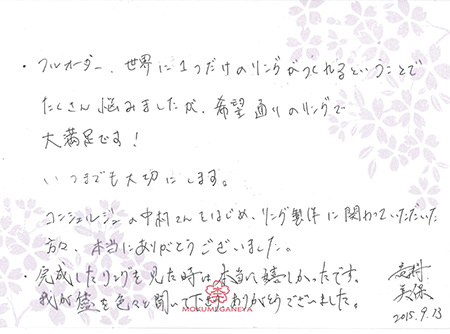 ・フルオーダー、世界に1つだけのリングがつくれるということで
たくさん悩みましたが、希望通りのリングで
大満足です!
いつまでも大切にします。
コンシェルジュの中村さんをはじめ、リング製作に関わっていただいた
方々、本当にありがとうございました。
・完成したリングを見た時は本当に嬉しかったです。
我が儘を色々と聞いて下さりありがとうございました。
MOKUMEGANEYA
高村
美保
2015.9.13